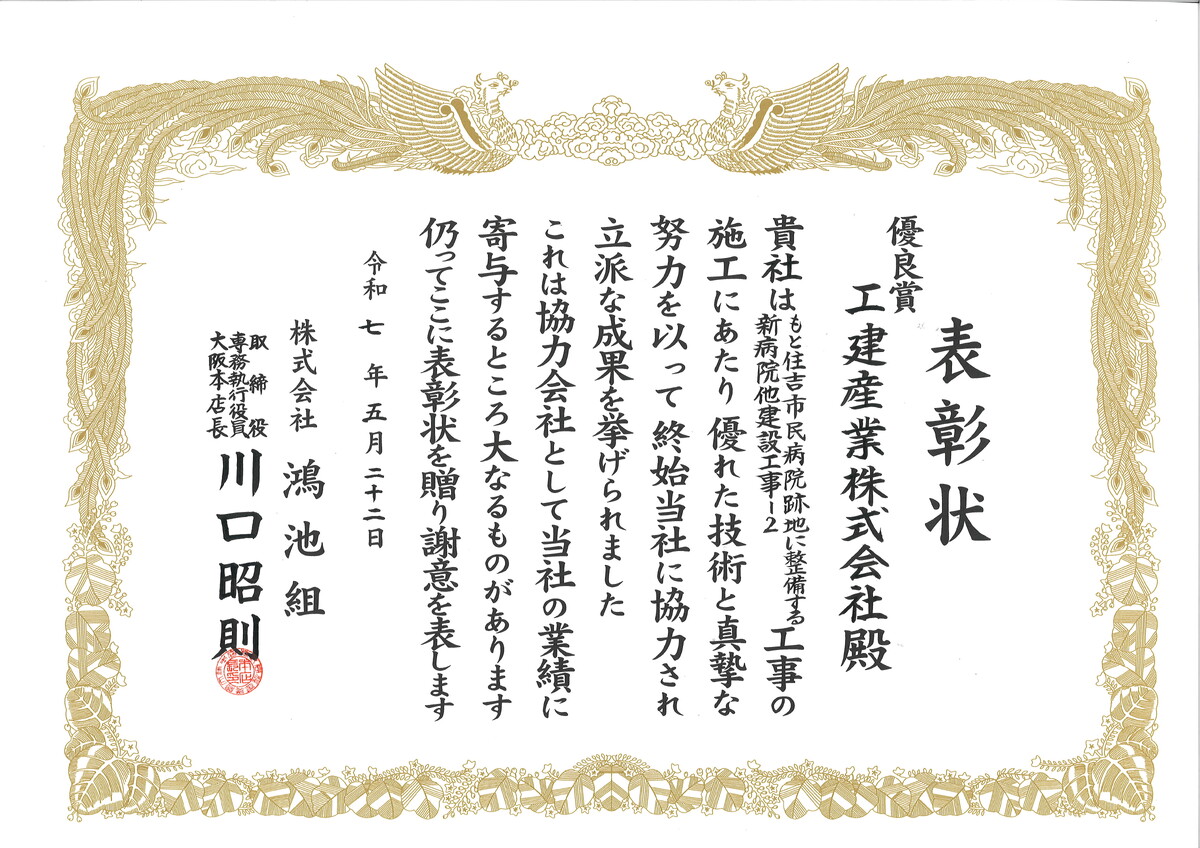 表彰状
優良賞
工建産業株式会社殿
貴社はもと住吉市民病院跡地に整備する新病院他建設工事-2工事の
施工にあたり優れた技術と真摯な
努力を以って終始当社に協力され
立派な成果を挙げられました
これは協力会社として当社の業績に
寄与するところ大なるものがあります
仍ってここに表彰状を贈り謝意を表します
令和七年五月二十二日
株式会社 鴻池組
取締役
専務執行役員
大阪本店長
川口昭則